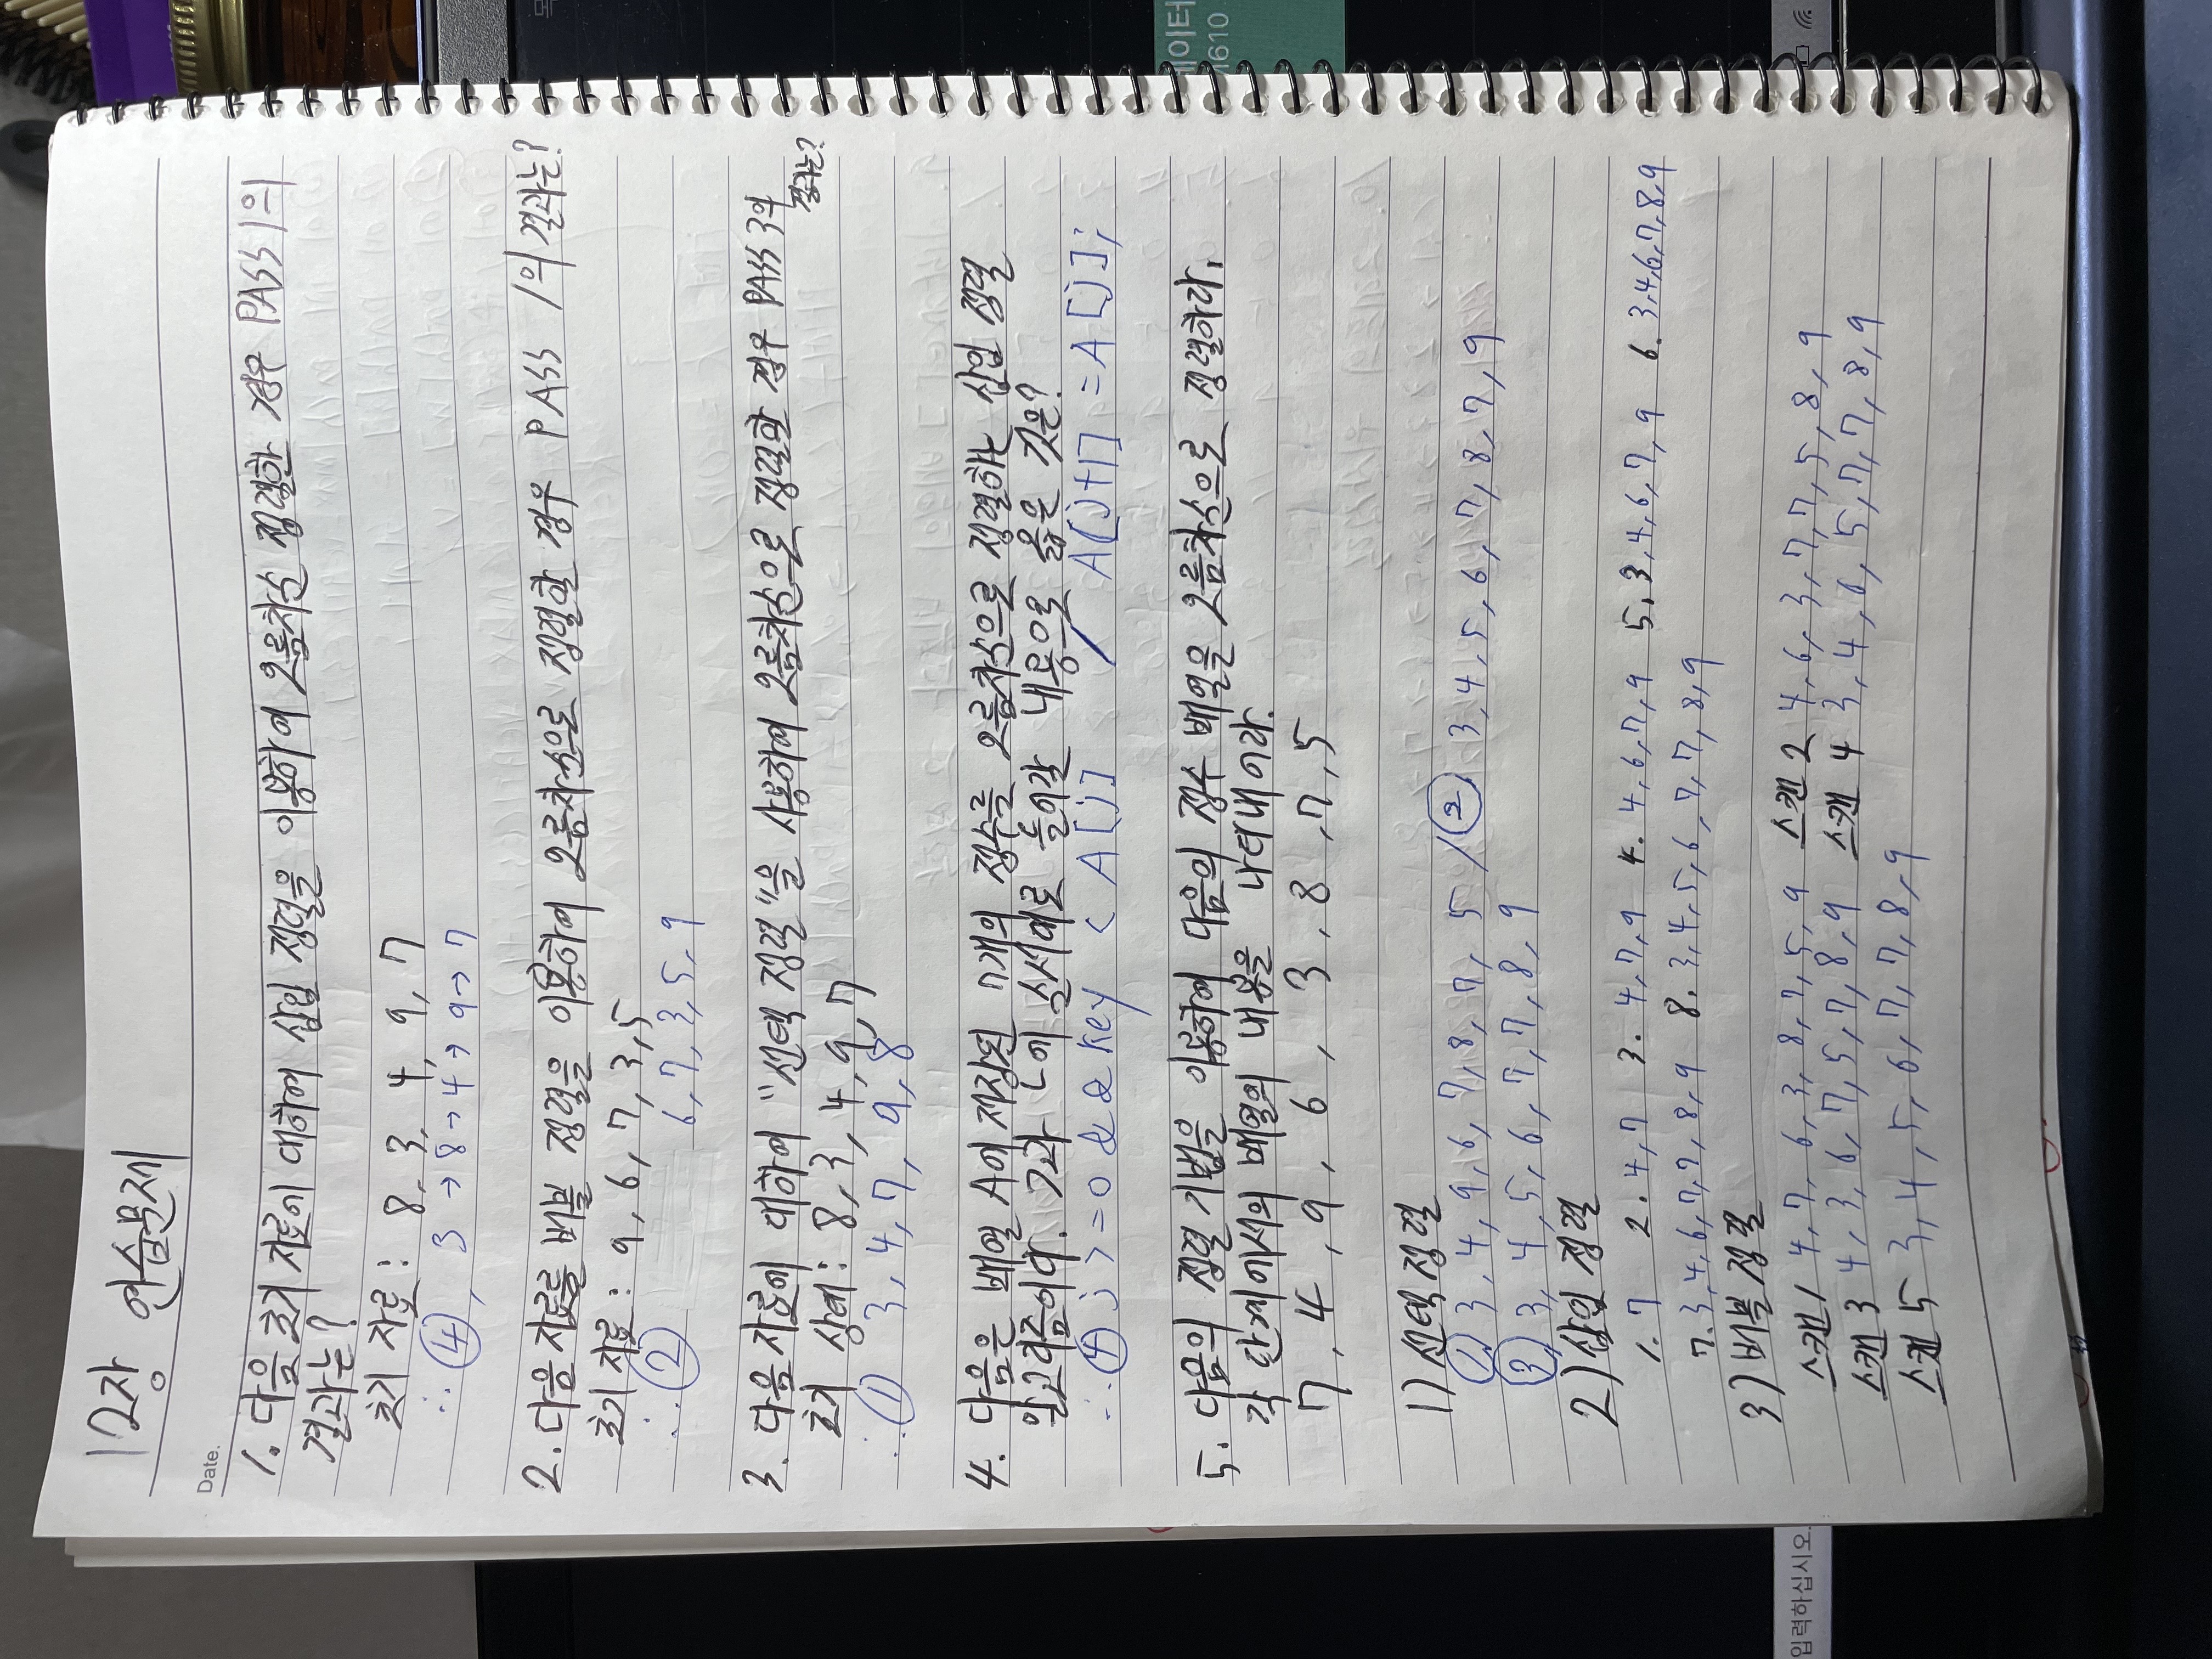 12장 연습문제
Date.
1. 다음 초기 자료에 대하여 삽입 정렬을 이용하여 오름차순 정렬한 경우 PASS 1의
결과는?
초기 자료: 8, 3, 4, 9, 7
∴ ④, 3 → 8 → 4 → 9 → 7
2. 다음 자료를 버블 정렬을 이용하여 오름차순으로 정렬할 경우 PASS 1의 결과는?
초기 자료: 9, 6, 7, 3, 5
∴ ② 6, 7, 3, 5, 9
3. 다음 자료에 대하여 "선택 정렬"을 사용하여 오름차순으로 정렬할 경우 PASS 3의
결과는?
초기 상태: 8, 3, 4, 9, 7
∴ ① 3, 4, 7, 9, 8
4. 다음은 배열 A에 저장된 n개의 정수를 오름차순으로 정렬하는 삽입 정렬
알고리즘이다. ㄱ과 ㄴ에 순서대로 들어갈 내용으로 옳은 것은?
∴ ④ j >= 0 && key < A[j] / A[j+1] = A[j];
5. 다음의 정렬 기법을 이용하여 다음의 정수 배열을 오름차순으로 정렬하라.
각 단계에서의 배열의 내용을 나타내어라.
7, 4, 9, 6, 3, 8, 7, 5
1) 선택 정렬
① 3, 4, 9, 6, 7, 8, 7, 5 / ② 3, 4, 5, 6, 7, 8, 7, 9
③ 3, 4, 5, 6, 7, 7, 8, 9
2) 삽입 정렬
1. 7 2. 4, 7 3. 4, 7, 9 4. 4, 6, 7, 9 5. 3, 4, 6, 7, 9 6. 3, 4, 6, 7, 8, 9
7. 3, 4, 6, 7, 7, 8, 9 8. 3, 4, 5, 6, 7, 7, 8, 9
3) 버블 정렬
스캔 1 4, 7, 6, 3, 8, 7, 5, 9 스캔 2 4, 6, 3, 7, 7, 5, 8, 9
스캔 3 4, 3, 6, 7, 5, 7, 8, 9 스캔 4 3, 4, 6, 5, 7, 7, 8, 9
스캔 5 3, 4, 5, 6, 7, 7, 8, 9
입력하십시오.
데이터
1610